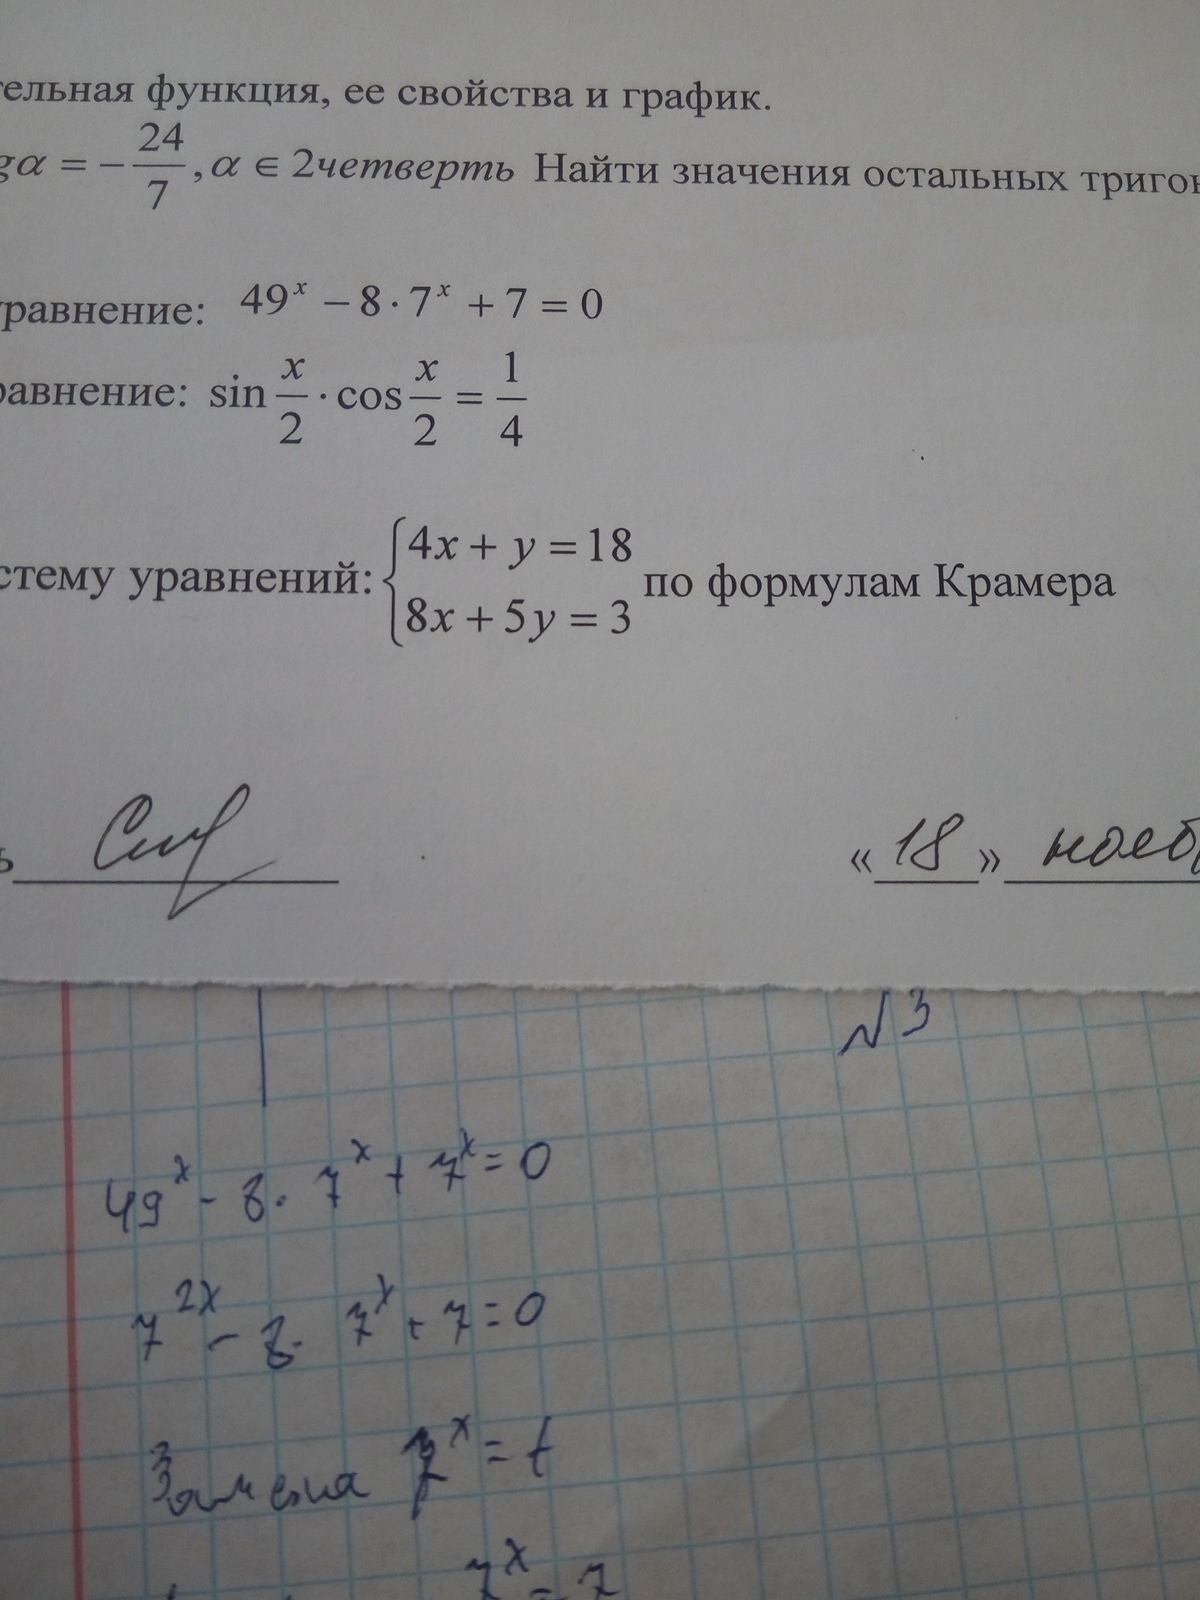 тельная функция, ее свойства и график.
gα = −24/7, α ∈ 2четверть Найти значения остальных тригон
уравнение: 49^x − 8 · 7^x + 7 = 0
равнение: sin x/2 · cos x/2 = 1/4
стему уравнений: {4x + y = 18
8x + 5y = 3 по формулам Крамера
ь
«18» ноябр
№3
49^x - 8 · 7^x + 7^x = 0
7^2x - 8 · 7^x + 7 = 0
Замена 7^x = t
7^x = 7